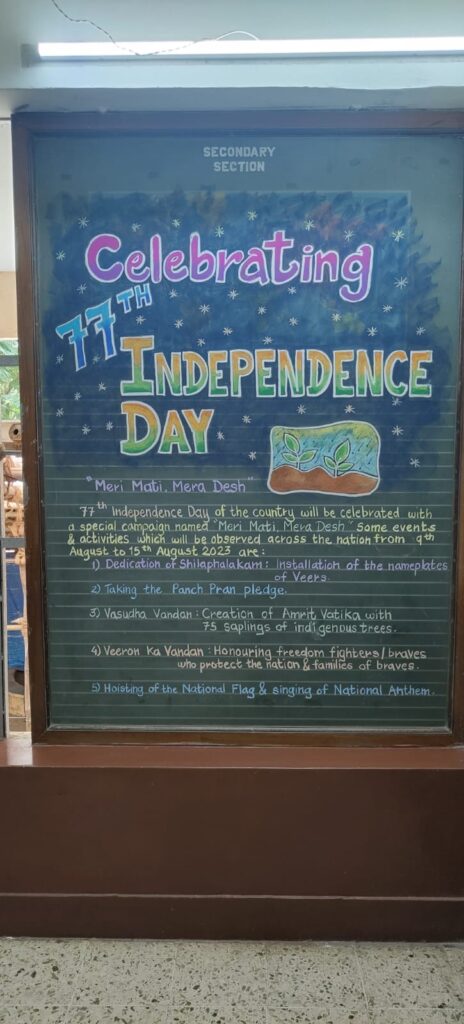 SECONDARY
SECTION
Celebrating
77TH
INDEPENDENCE
DAY
"Meri Mati, Mera Desh"
77th Independence Day of the country will be celebrated with
a special campaign named "Meri Mati, Mera Desh." Some events
& activities which will be observed across the nation from 9th
August to 15th August 2023 are:
1) Dedication of Shilaphalakam: Installation of the nameplates
of Veers.
2) Taking the Panch Pran pledge.
3) Vasudha Vandan: Creation of Amrit Vatika with
75 saplings of indigenous trees.
4) Veeron Ka Vandan: Honouring freedom fighters/braves
who protect the nation & families of braves.
5) Hoisting of the National Flag & singing of National Anthem.